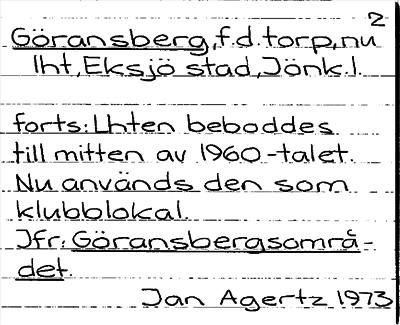 2
Göransberg, f.d. torp, nu
lht, Eksjö stad, Jönk. l.
forts: Lhten beboddes
till mitten av 1960-talet.
Nu används den som
klubblokal.
Jfr: Göransbergsområ-
det.
Jan Agertz 1973